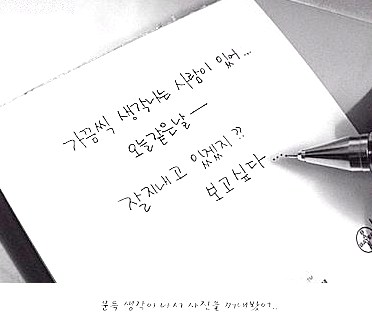 가끔씩 생각나는 사람이 있어...
오늘같은날 —
잘지내고 있겠지??
보고싶다...
문득 생각이 나서 사진을 꺼내봤어..